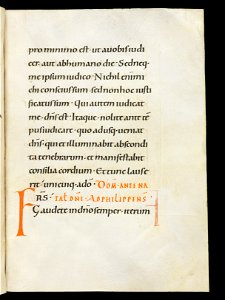 pro minimo est · ut a uobis iudi
cer · aut ab humano die · Sed neq;
me ipsum iudico · Nichil enim
mihi conscius sum · sed non hoc iusti
ficatus sum · Qui autem iudicat
me · dns est · Itaque · nolite ante tem
pus iudicare · quo adusq; ueniat
dns · qui et illuminabit abscondi
ta tenebrarum · et manifestabit
consilia cordium · Et tunc laus e
rit unicuiq; a do · DOM · ANTE NA
FRS · TAT DNI · AD PHILIPPENS
Gaudete in dno semper · iterum